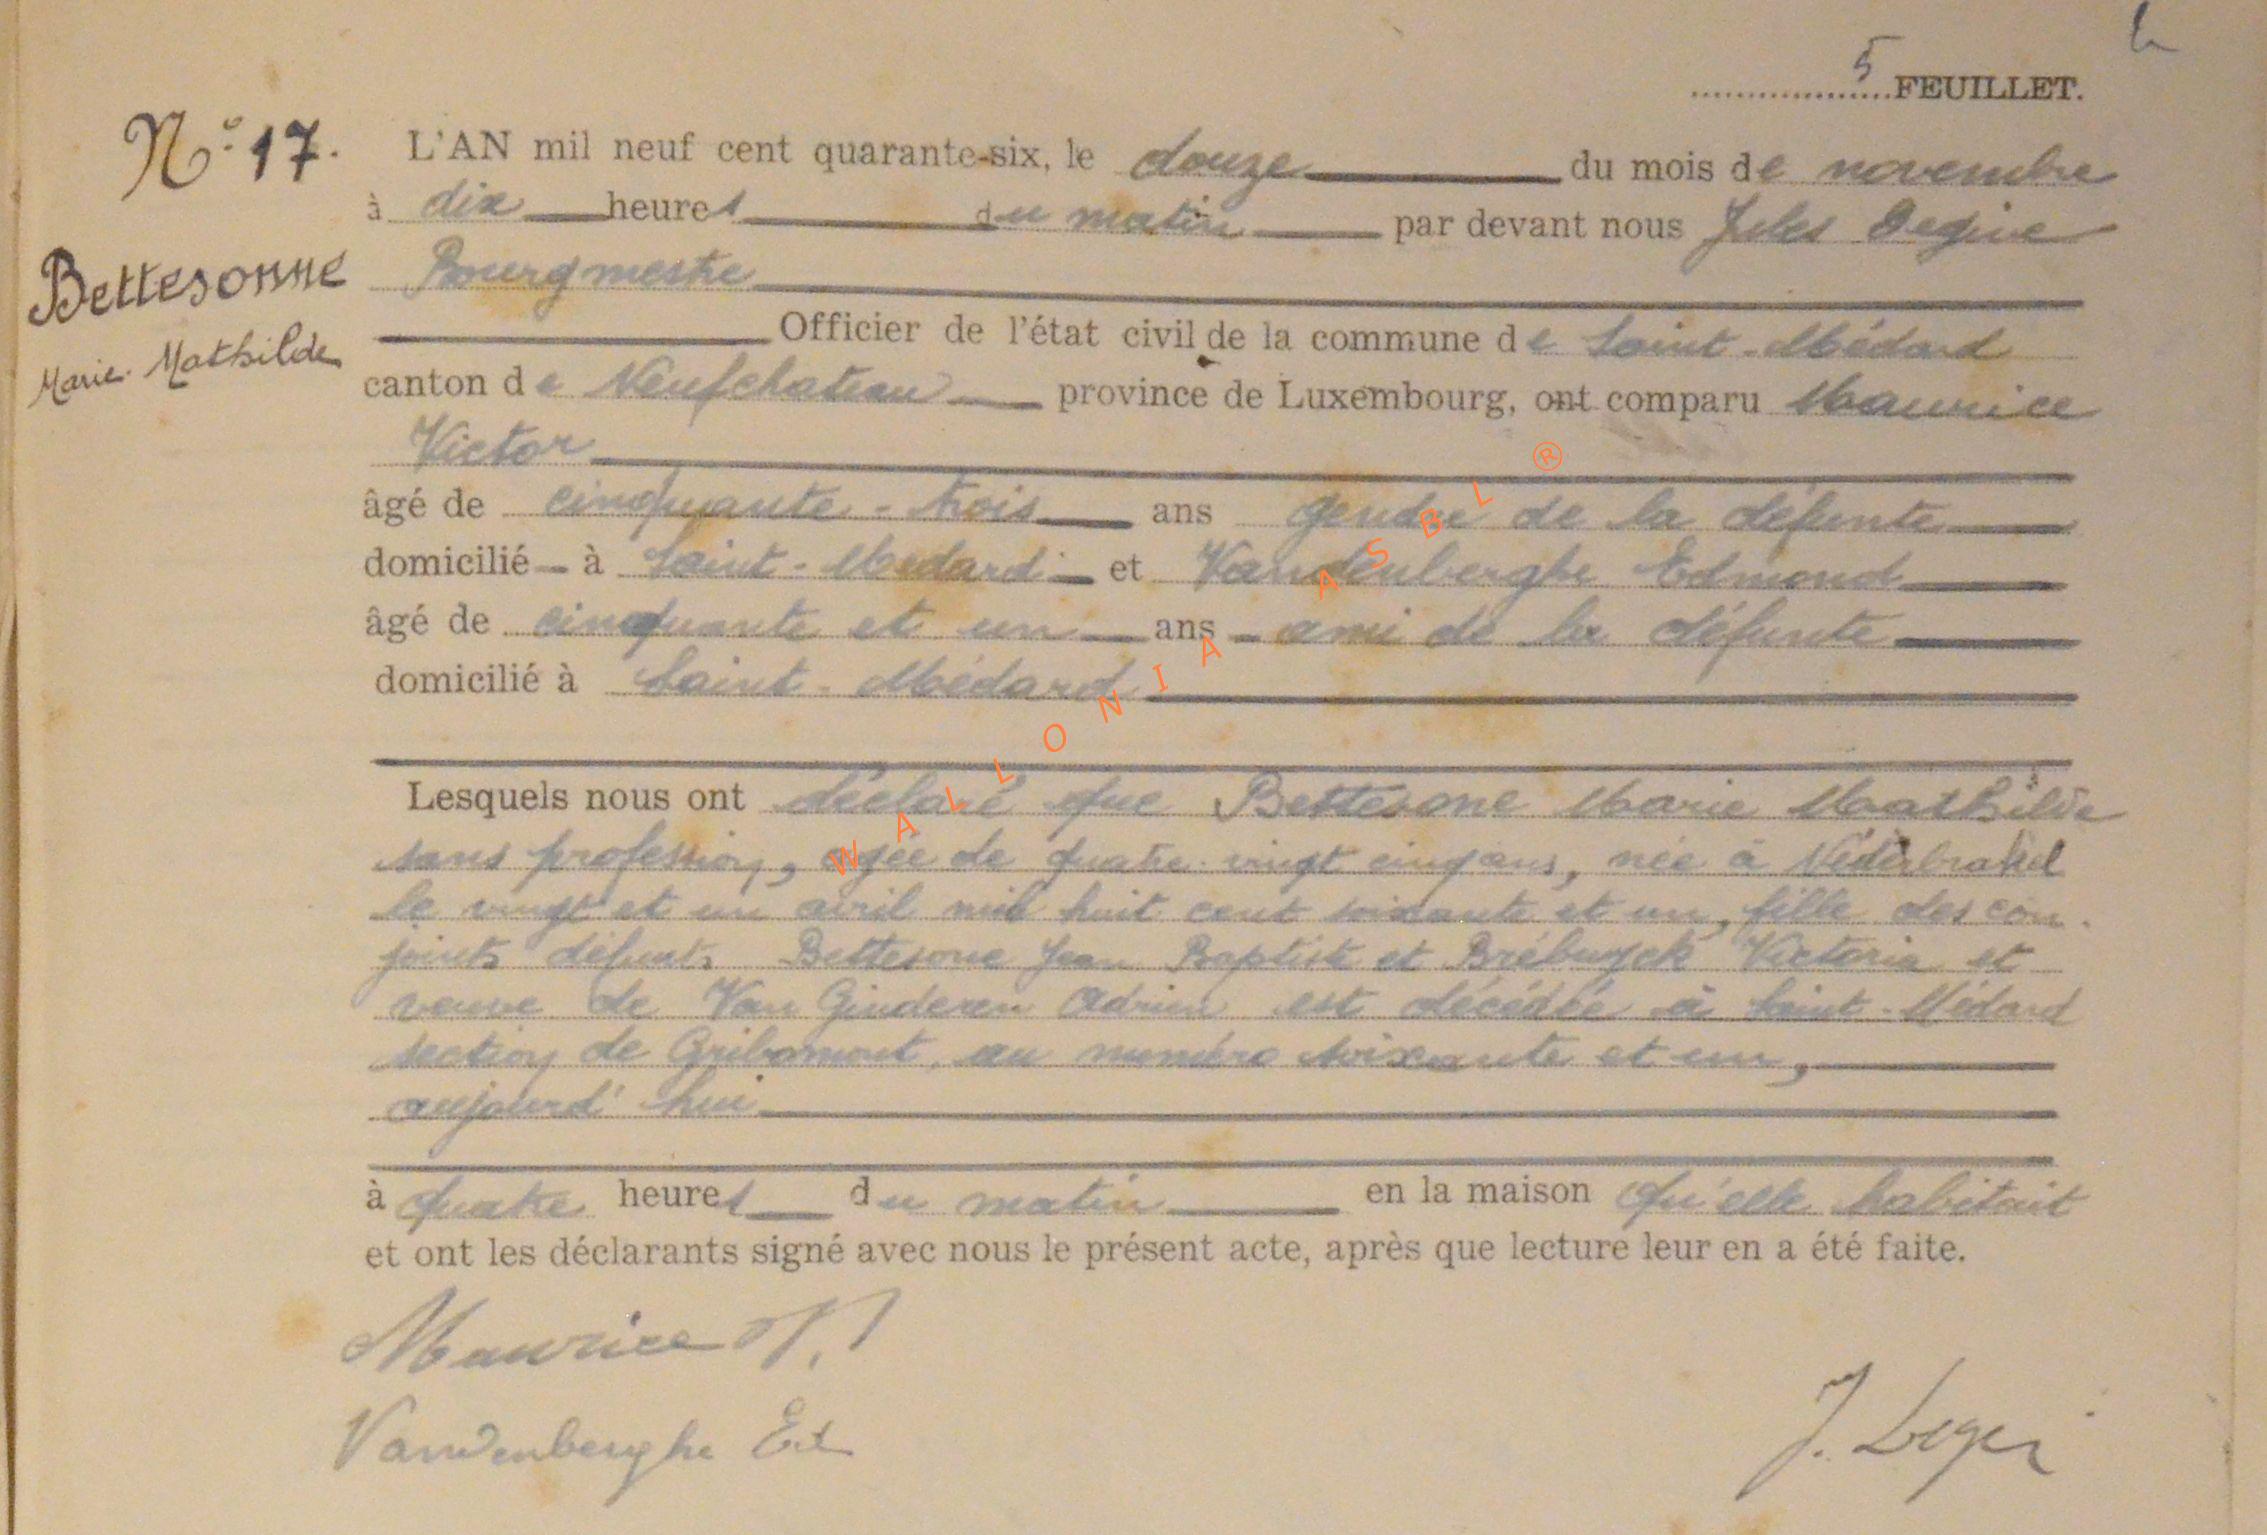 5 FEUILLET.
N° 17.
Bettesonne
Marie-Mathilde
L'AN mil neuf cent quarante-six, le douze du mois de novembre
à dix heures du matin par devant nous Jules Degive
Bourgmestre
Officier de l'état civil de la commune de Saint-Médard
canton de Neufchateau province de Luxembourg, ont comparu Maurice
Victor
âgé de cinquante-trois ans gendre de la défunte
domicilié à Saint-Médard et Vandenberghe Edmond
âgé de cinquante et un ans ami de la défunte
domicilié à Saint-Médard
Lesquels nous ont déclaré que Bettesone Marie Mathilde
sans profession, agée de quatre-vingt cinq ans, née à Nederbrakel
le vingt et un avril mil huit cent soixante et un, fille des con-
joints défunts Bettesone Jean Baptiste et Brébuyck Victoria et
veuve de Van Ginderen Adrien est décédée à Saint-Médard
section de Gribomont, au numéro soixante et un,
aujourd'hui
à quatre heures du matin en la maison qu'elle habitait
et ont les déclarants signé avec nous le présent acte, après que lecture leur en a été faite.
Maurice V.
Vandenberghe Ed
J. Degive
WALLONIA ASBL ®